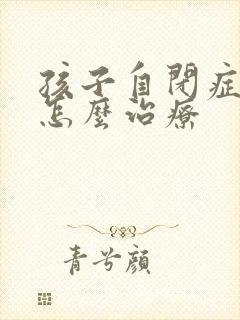 孩子自閉症
怎麼治療
青兮顏